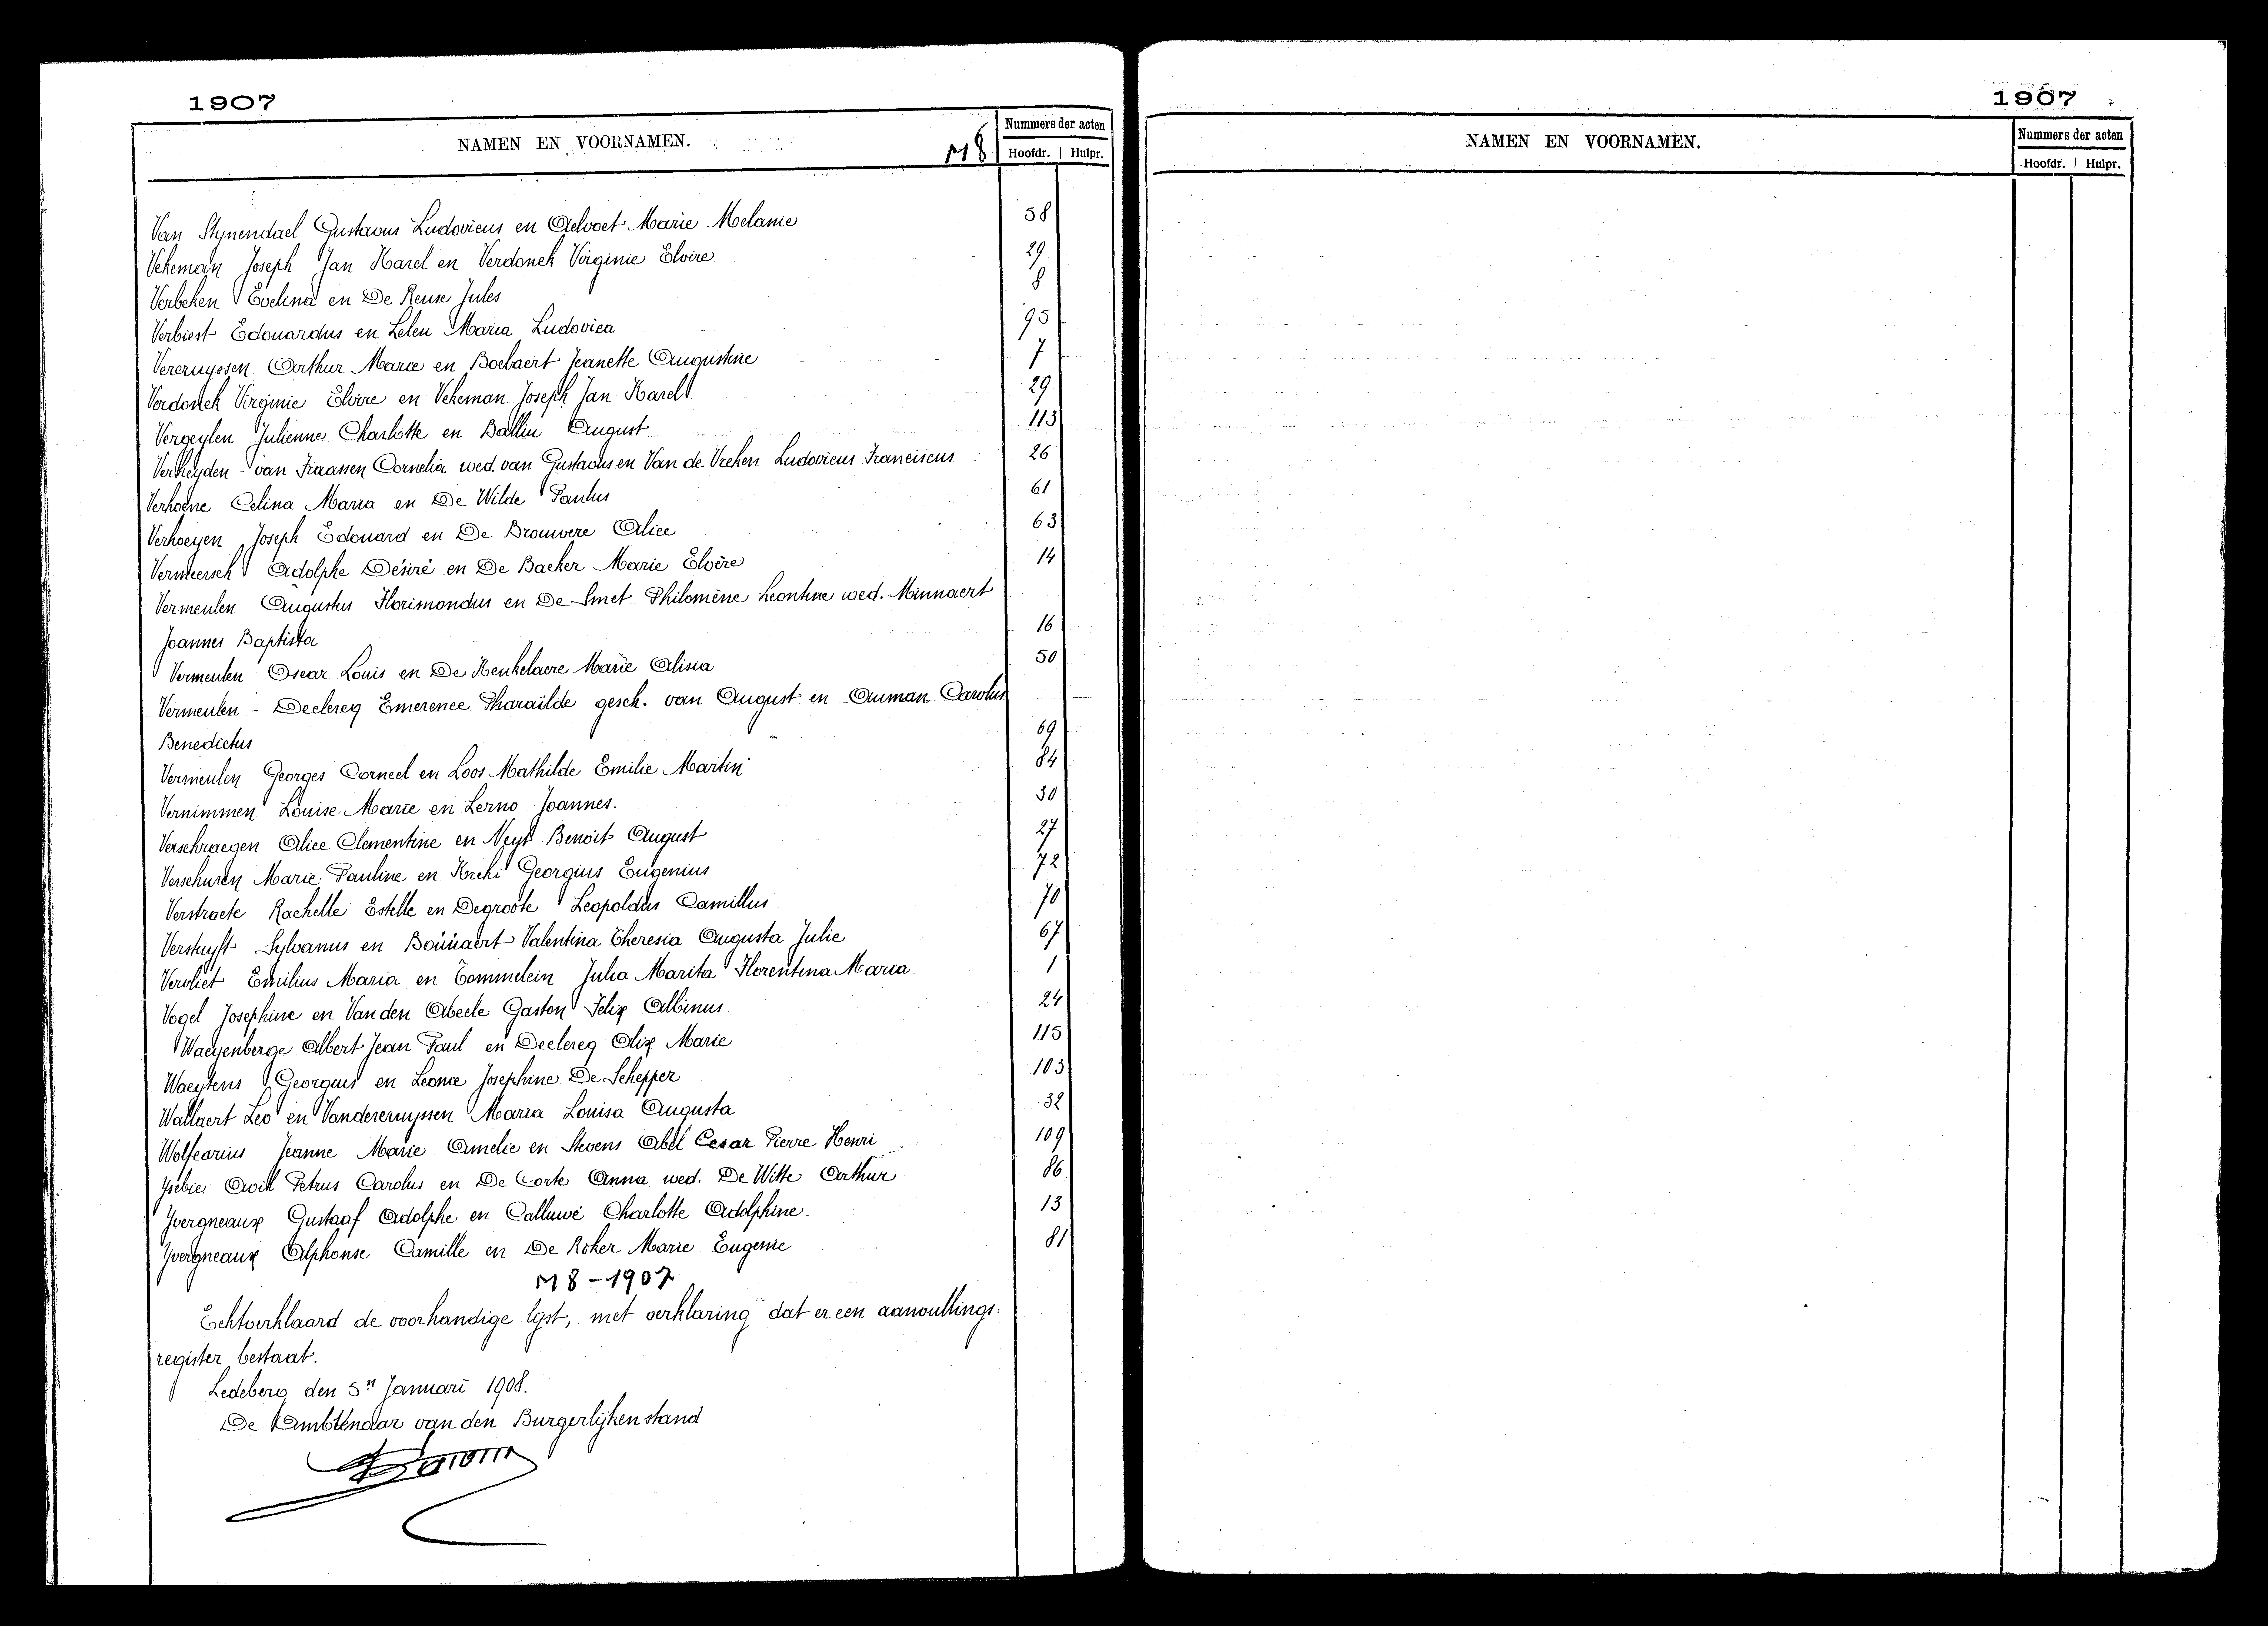 1907
NAMEN EN VOORNAMEN.
M8
Nummers der acten
Hoofdr. Hulpr.
Van Stynendael Gustavus Ludovicus en Aelvoet Marie Melanie 58
Vekeman Joseph Jan Karel en Verdonck Virginie Elvire 29
Verbeken Evelina en De Reuse Jules 8
Verbiest Edouardus en Lelen Maria Ludovica 95
Vercruyssen Arthur Marie en Boelaert Jeanette Augustine 7
Verdonck Virginie Elvire en Vekeman Joseph Jan Karel 29
Vergeylen Julienne Charlotte en Balliu August 113
Verheyden - van Fraassen Cornelia wed. van Gustavus en Van de Vreken Ludovicus Franciscus 26
Verhoene Celina Maria en De Wilde Paulus 61
Verhoeyen Joseph Edouard en De Brouwere Alice 63
Vermeersch Adolphe Désiré en De Backer Marie Elvère 14
Vermeulen Augustus Florimondus en De Smet Philomène Leontine wed. Minnaert
Joannes Baptista 16
Vermeulen Oscar Louis en De Keukelaere Marie Alisia 50
Vermeulen - Declercq Emerence Pharaïlde gesch. van August en Auman Carolus
Benedictus 69
Vermeulen Georges Corneel en Loos Mathilde Emilie Martin 84
Vernimmen Louise Marie en Lerno Joannes. 30
Verschraegen Alice Clementine en Neyt Benoit August 27
Verschuren Marie Pauline en Kreki Georgius Eugenius 72
Verstraete Rachelle Estelle en Degroote Leopoldus Camillus 70
Verstuyft Sylvanus en Valentina Theresia Augusta Julie 67
Vervliet Emilius Maria en Tommelein Julia Marita Florentina Maria 1
Vogel Josephine en Van den Abeele Gaston Felix Albinus 24
Waeyenberge Albert Jean Paul en Declercq Alix Marie 115
Waeytens Georgius en Leonie Josephine De Schepper 103
Wallaert Leo en Vandercruyssen Maria Louisa Augusta 32
Wolfcarius Jeanne Marie Amelie en Stevens Abel Cesar Pierre Henri 109
Ysebie Petrus Carolus en De Corte Anna wed. De Witte Arthur 86
Yvergneaux Gustaaf Adolphe en Calluwé Charlotte Adolphine 13
Yvergneaux Alphonse Camille en De Roker Marie Eugenie 81
M 8 - 1907
Echtverklaard de voorhandige lijst, met verklaring dat er een aanvullings-
register bestaat.
Ledeberg den 5n Januari 1908.
De Ambtenaar van den Burgerlijken stand
1907
NAMEN EN VOORNAMEN.
Nummers der acten
Hoofdr. Hulpr.